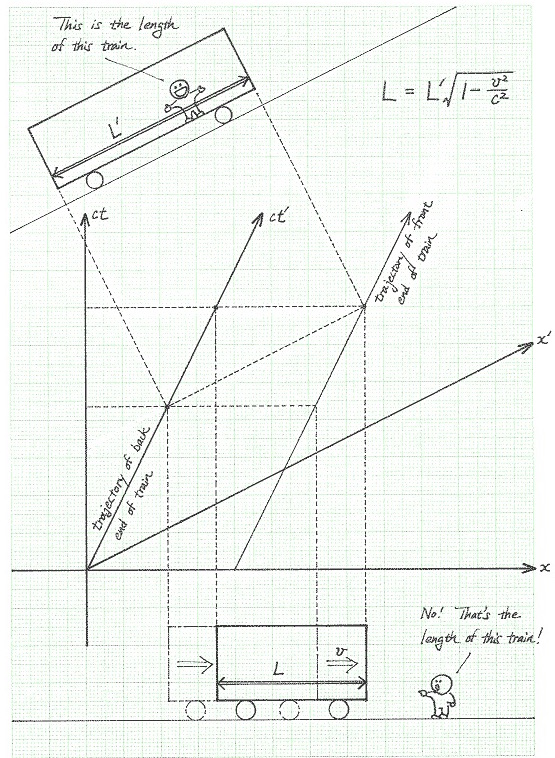 This is the length
of this train.
L = L'√(1 - v²/c²)
L'
ct
ct'
trajectory of front
end of train
x'
trajectory of back
end of train
x
No! That's the
length of this train!
L
v